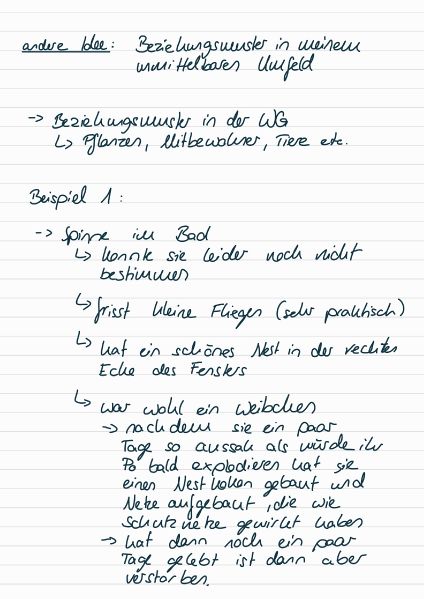 andere Idee: Beziehungsmuster in meinem
unmittelbaren Umfeld
-> Beziehungsmuster in der WG
↳ Pflanzen, Mitbewohner, Tiere etc.
Beispiel 1:
-> Spinne im Bad
↳ konnte sie leider noch nicht
bestimmen
↳ frisst kleine Fliegen (sehr praktisch)
↳ hat ein schönes Nest in der rechten
Ecke des Fensters
↳ war wohl ein Weibchen
-> nachdem sie ein paar
Tage so aussah als würde ihr
Po bald explodieren hat sie
einen Nestkokon gebaut und
Netze aufgebaut, die wie
Schutznetze gewirkt haben
-> hat dann noch ein paar
Tage gelebt ist dann aber
verstorben.